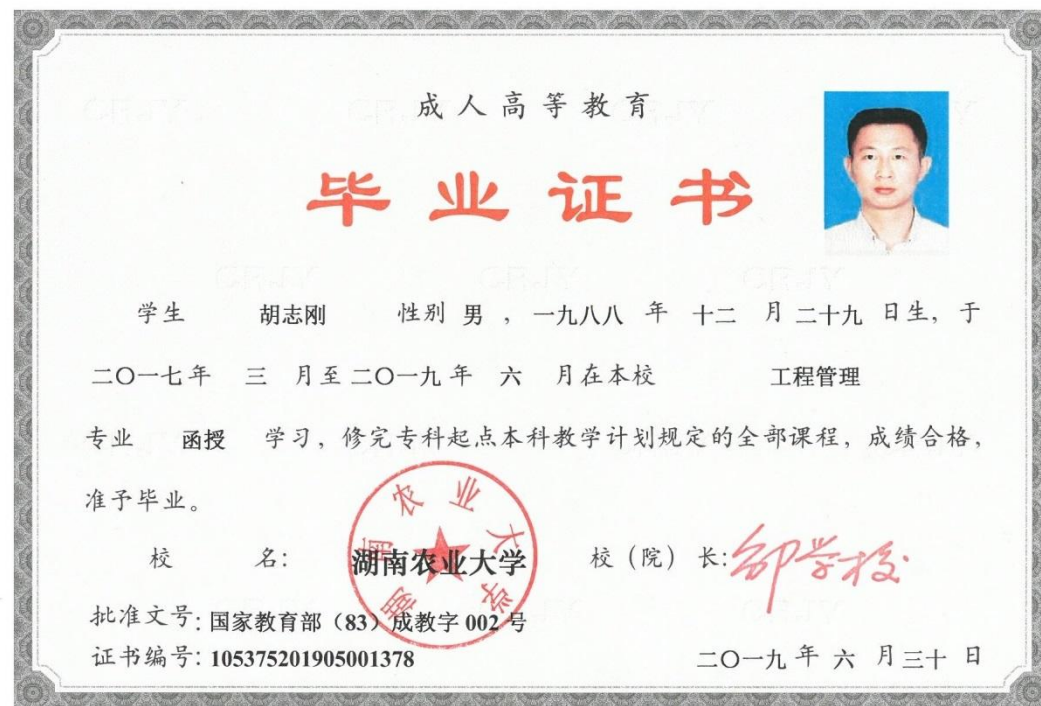 成人高等教育
毕业证书
学生 胡志刚 性别 男 ，一九八八 年 十二 月 二十九 日生，于
二〇一七年 三 月至 二〇一九年 六 月在本校 工程管理
专业 函授 学习，修完专科起点本科教学计划规定的全部课程，成绩合格，
准予毕业。
湖南农业大学
校 名：湖南农业大学 校（院）长：邹学校
批准文号：国家教育部（83）成教字 002 号
证书编号：105375201905001378
二〇一九 年 六 月 三十 日